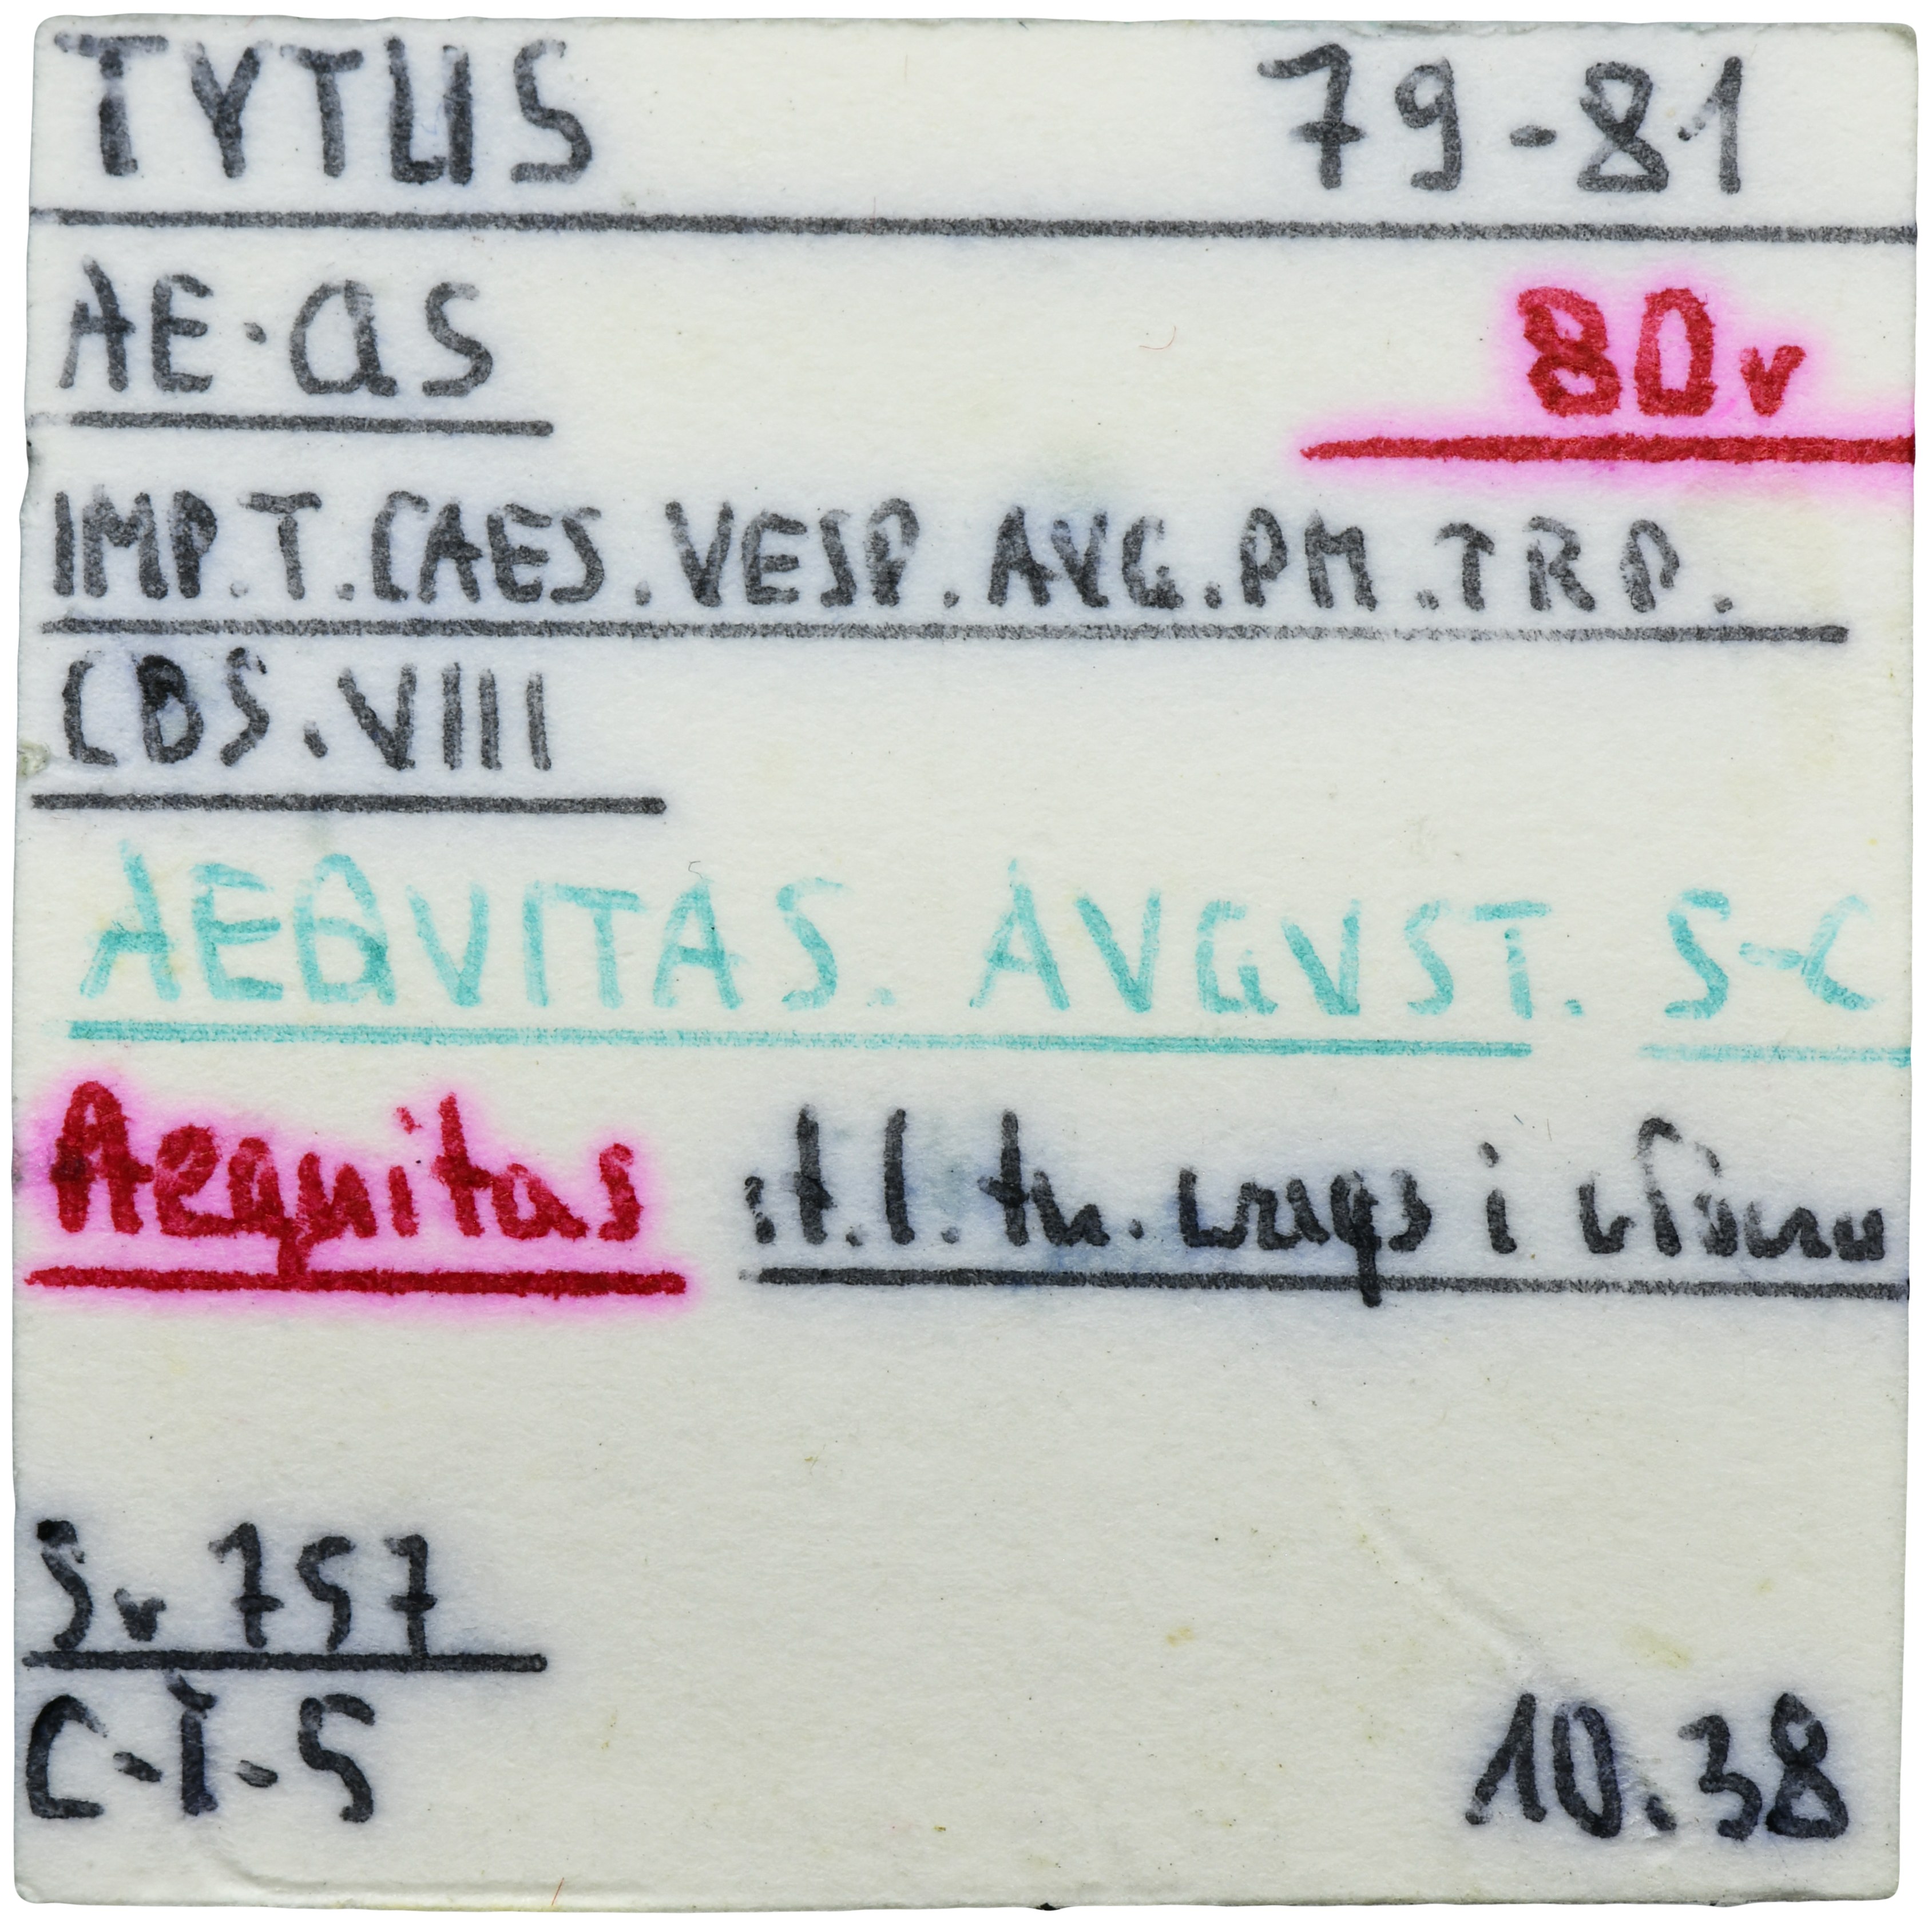 TYTUS 79-81
AE·as 80r
IMP.T.CAES.VESP.AVG.PM.TRP.
COS.VIII
AEQVITAS. AVGVST. S-C
Aequitas st.l. tu. wagę i
Sr 757
C-I-S 10.38